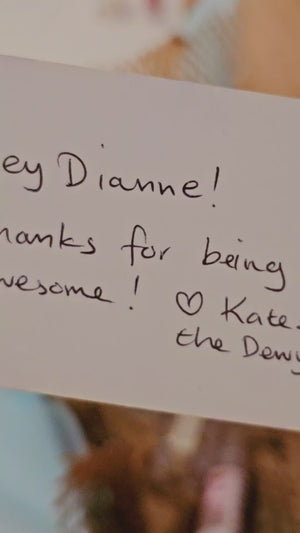 ey Dianne!
hanks for being
wesome! ♡ Kate
the Dewy